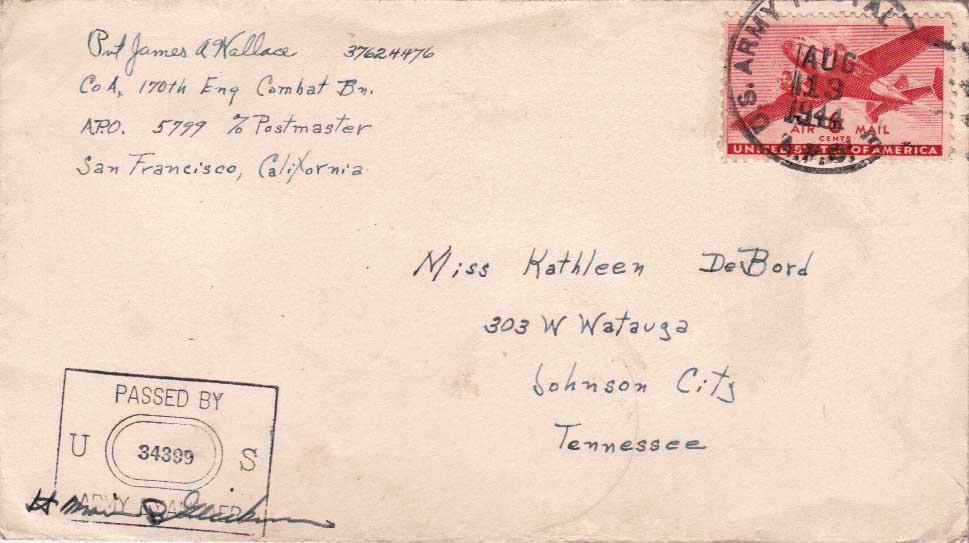 Pvt James A Wallace 37624476
Co A, 170th Eng Combat Bn.
A.P.O. 5799 c/o Postmaster
San Francisco, California
U.S. ARMY POSTAL
AUG
13
1944
A.P.O.
AIR 6 MAIL
CENTS
UNITED STATES OF AMERICA
Miss Kathleen DeBord
303 W Watauga
Johnson City
Tennessee
PASSED BY
U 34399 S
ARMY EXAMINER